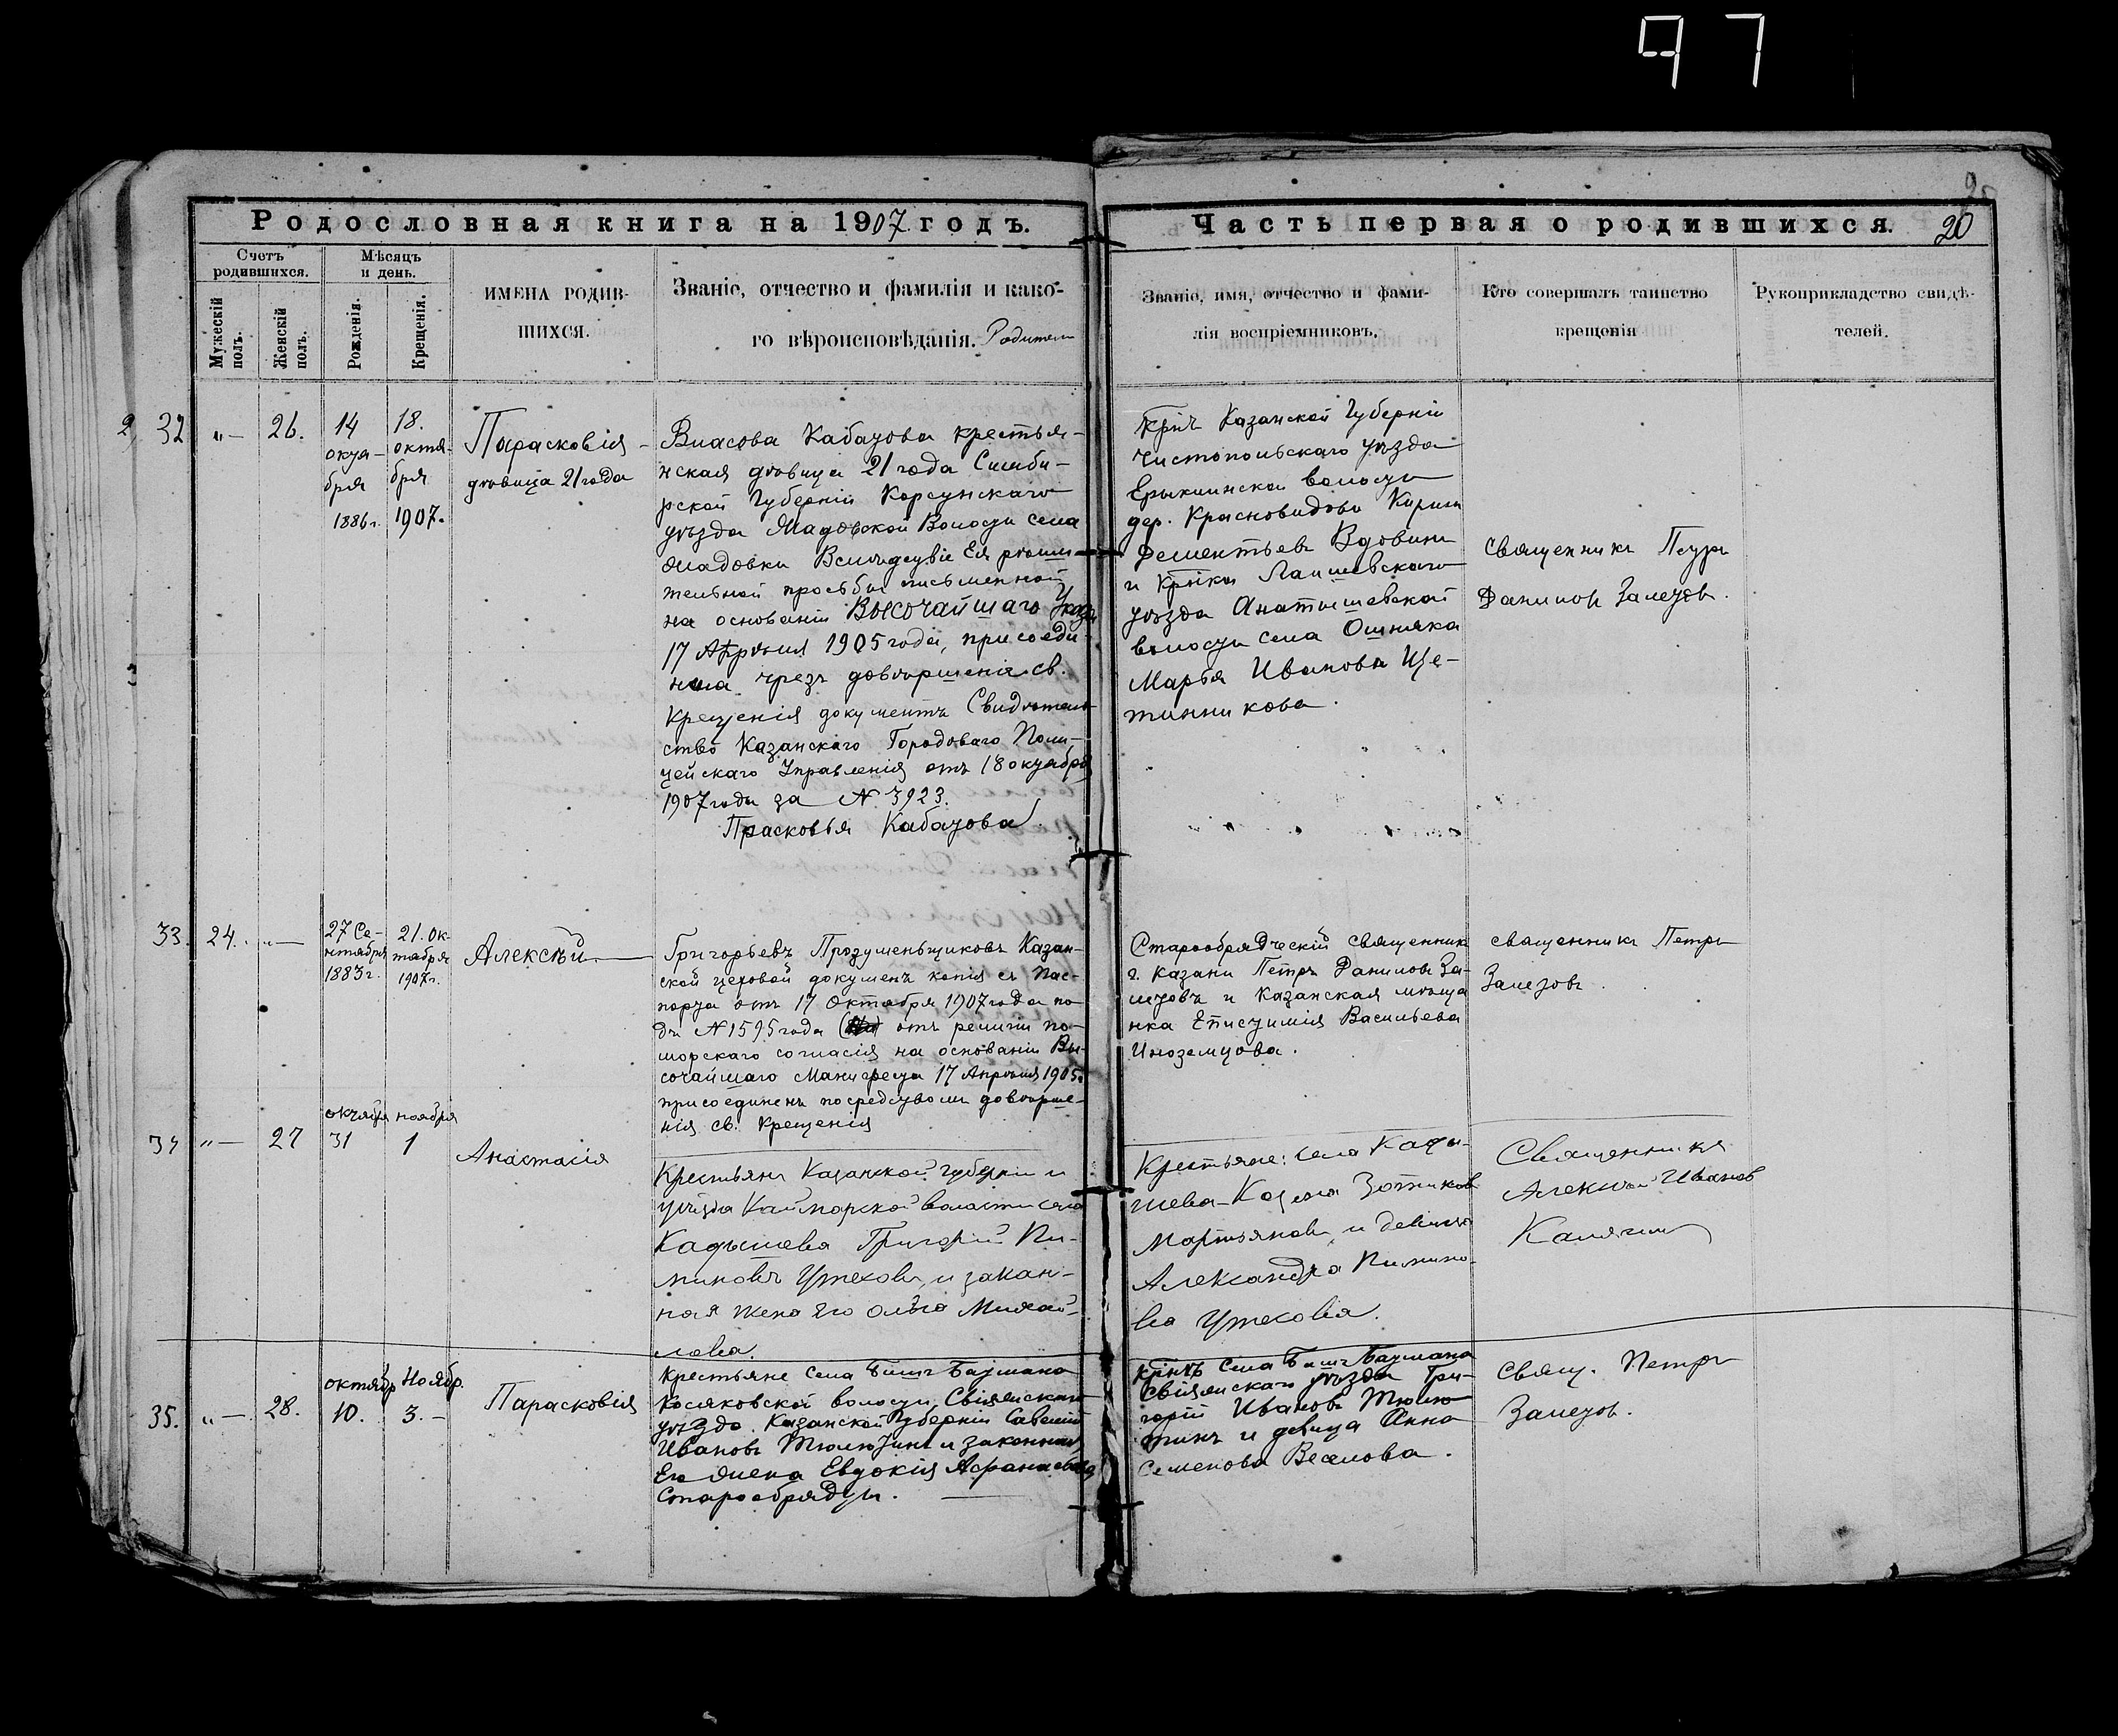 97
Родословная книга на 1907 годъ.
Часть первая о родившихся. 20
Счетъ
родившихся.
Мѣсяцъ
и день.
Мужескій
полъ.
Женскій
полъ.
Рожденія.
Крещенія.
ИМЕНА РОДИВ-
ШИХСЯ.
Званіе, отчество и фамилія и како-
го вѣроисповѣданія. Родители
Званіе, имя, отчество и фами-
лія воспріемниковъ.
Кто совершалъ таинство
крещенія
Рукоприкладство свидѣ-
телей.
32 „— 26.
14
октя-
бря
1886 г.
18.
октя-
бря
1907.
Парасковія –
дѣвица 21 года
Власова Кабацова крестья-
нская дѣвица 21 года Симби-
рской Губерніи Корсунскаго
уѣзда Мадовской Волости села
Мадовки Вслѣдствіе Ея рѣши-
тельной просьбы письменной
на основаніи Высочайшаго Указа
17 Апрѣля 1905 года, присоеди-
нена чрезъ довѣршеніе св.
крещенія документъ Свидѣтель-
ство Казанскаго Городоваго Поли-
цейскаго Управленія отъ 18 октября
1907 года за N 3923.
Прасковья Кабацова
Крнъ Казанской Губерніи
Чистопольскаго уѣзда
Ерыклинской волости
дер. Красновидова Кирилъ
Дементьевъ Вдовинъ
и Крнка Лаишевскаго
уѣзда Анатышевской
волости села Ошняка
Марья Иванова Ще-
тинникова.
священникъ Петръ
Даниловъ Залетовъ.
33. 24. „—
27 Се-
нтября
1883 г.
21. Ок-
тября
1907 г.
Алексѣй
Григорьевъ Прозументщиковъ Казан-
ской цеховой документъ копія съ Пас-
порта отъ 17 Октября 1907 года по-
дъ N 1595 года отъ религи по-
морскаго согласія на основаніи Вы-
сочайшаго Манифеста 17 Апрѣля 1905 г.
присоединенъ посредствомъ довѣрше-
нія св. Крещенія
Старообрядческій священникъ
г. Казани Петръ Даниловъ За-
летовъ и Казанская мѣща
нка Епистимія Васильева
Иноземцова.
священникъ Петръ
Залетовъ.
34 „— 27
октября
31
ноября
1
Анастасія
Крестьянъ Казанской губерніи и
уѣзда Каймарской воласти села
Кадышева Григорій Пи-
миновъ Утеховъ, и закан-
ная жена Его Ольга Михай-
лова.
Крестьяне: села Кады-
шева – Козьма Зотиков
Мартьяновъ, и девица
Александра Пимино-
ва Утехова.
Священникъ
Алексѣй Иванов
Калягин
35. „— 28.
октябр
10.
Ноябр.
3. –
Парасковія
Крестьяне села Бишъ Баумана
Косяковской волости, Свіяжскаго
уѣзда. Казанской Губерніи Савелій
Ивановъ Тюлютинъ и законная
Его жена Евдокія Афанасьева
Старообрядцы.
Крнъ села Бишъ Баумана
Свіяжскаго уѣзда Гри-
горій Ивановъ Тюлю-
тинъ и дѣвица Анна
Семенова Веселова.
Свящ. Петръ
Залетовъ.